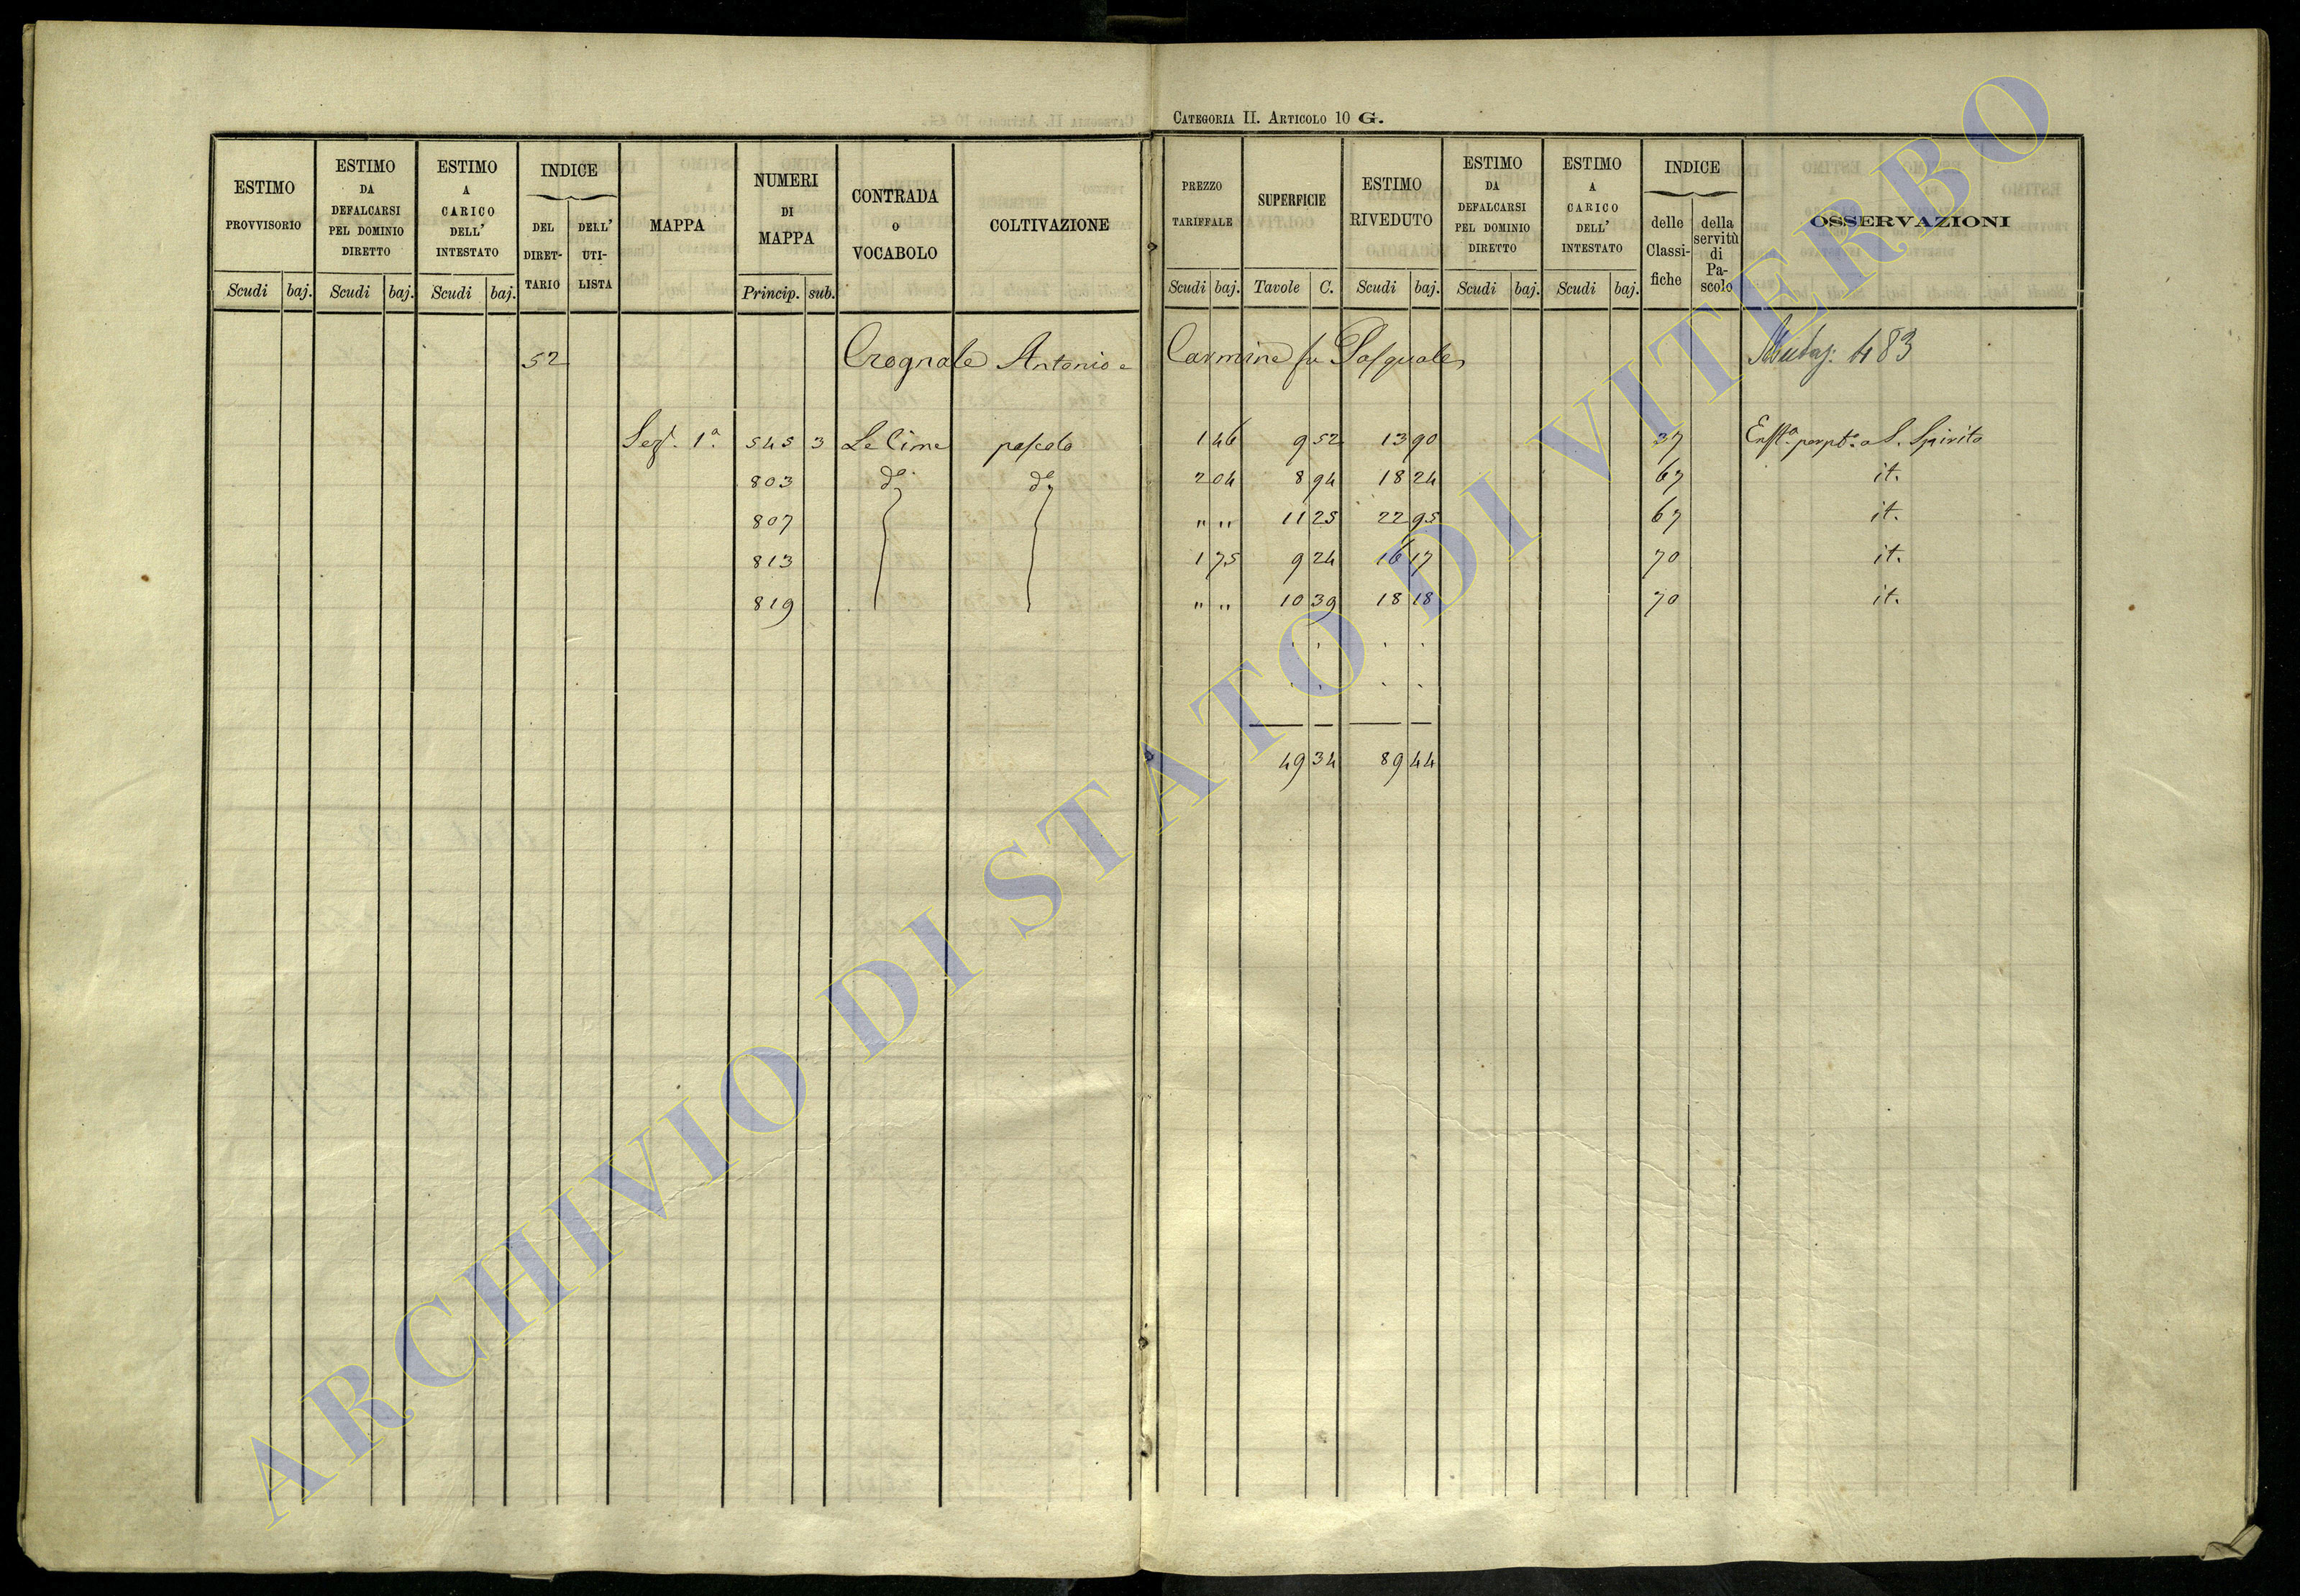 CATEGORIA II. ARTICOLO 10 G.
ESTIMO PROVVISORIO
Scudi baj.
ESTIMO DA DEFALCARSI PEL DOMINIO DIRETTO
Scudi baj.
ESTIMO A CARICO DELL' INTESTATO
Scudi baj.
INDICE
DEL DIRET-
TARIO
DELL' UTI-
LISTA
MAPPA
NUMERI DI MAPPA
Princip. sub.
CONTRADA o VOCABOLO
COLTIVAZIONE
PREZZO TARIFFALE
Scudi baj.
SUPERFICIE
Tavole C.
ESTIMO RIVEDUTO
Scudi baj.
ESTIMO DA DEFALCARSI PEL DOMINIO DIRETTO
Scudi baj.
ESTIMO A CARICO DELL' INTESTATO
Scudi baj.
INDICE
delle Classi-
fiche
della servitù di Pa-
scolo
OSSERVAZIONI
52 Crognale Antonio e Carmine fu Pasquale 483
Sez. 1a 545 3 Le Cime pascolo 1 46 9 52 13 90 37 S. Spirito
803 do do 2 04 8 94 18 24 67 it.
807 " " 11 25 22 95 67 it.
813 1 75 9 24 16 17 70 it.
819 " " 10 39 18 18 70 it.
49 34 89 44
ARCHIVIO DI STATO DI VITERBO